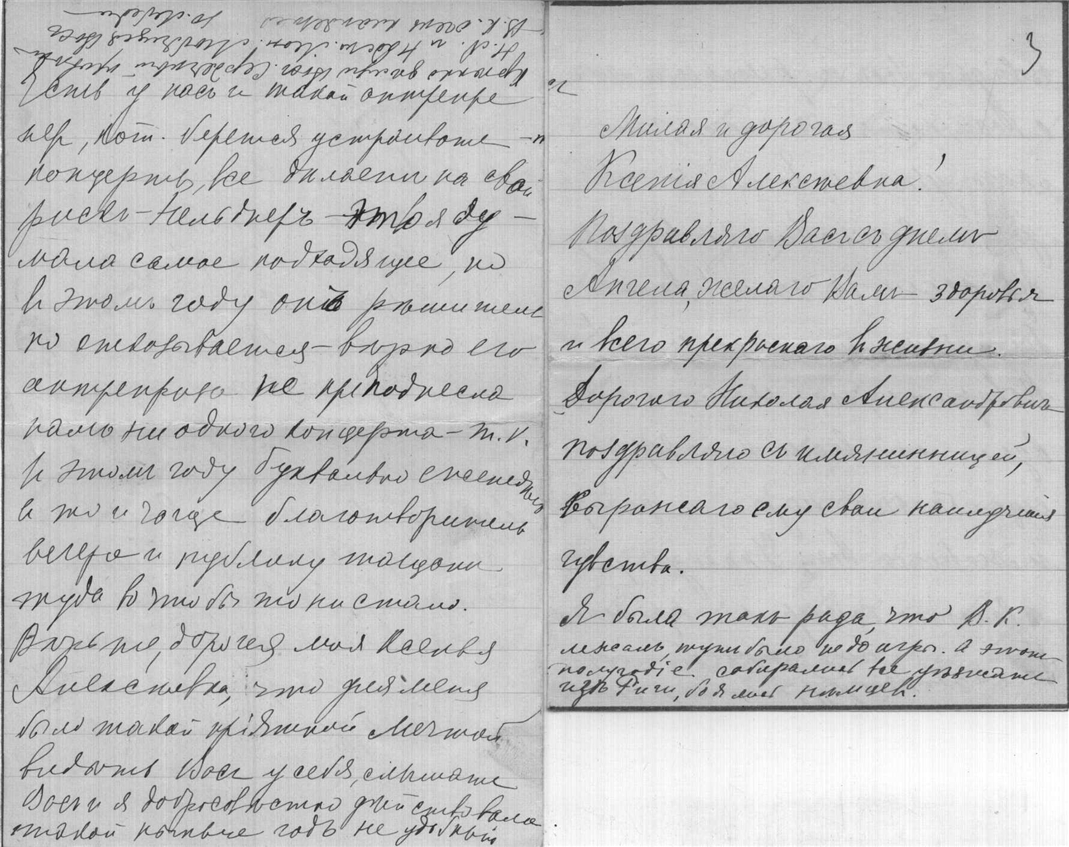 3
Милая и дорогая
Ксенія Алексѣевна!
Поздравляю Васъ съ днемъ
Ангела, желаю Вамъ здоровья
и всего прекраснаго въ жизни.
Дорогого Николая Александровича
поздравляю съ имянинницей,
выражаю ему свои наилучшія
чувства.
Я была такъ рада, что В. К.
было не до игры. А этотъ
полугодіе собирались всѣ уѣзжать
изъ Риги, боялись нѣмцевъ.
Есть у насъ и такой антрепре
неръ, кот. берется устроивать
концерты, все дѣлаетъ на свой
рискъ – Нельднеръ – это я ду-
мала самое подходящее, но
въ этомъ году онъ рѣшитель
но отказывается – вѣрно его
антреприза не преподнесла
намъ ни одного концерта – т. к.
въ этомъ году буквально еженедѣльно
а то и чаще благотворитель
вечера и публику тащили
туда во что бы то ни стало.
Вѣрьте, дорогая моя Ксенья
Алексѣевна, что для меня
было такой пріятной мечтой
видѣть Васъ у себя, слышать
Васъ и я добросовѣстно дѣйствовала
такой нынче годъ не удобный
В. К. очень кланяется